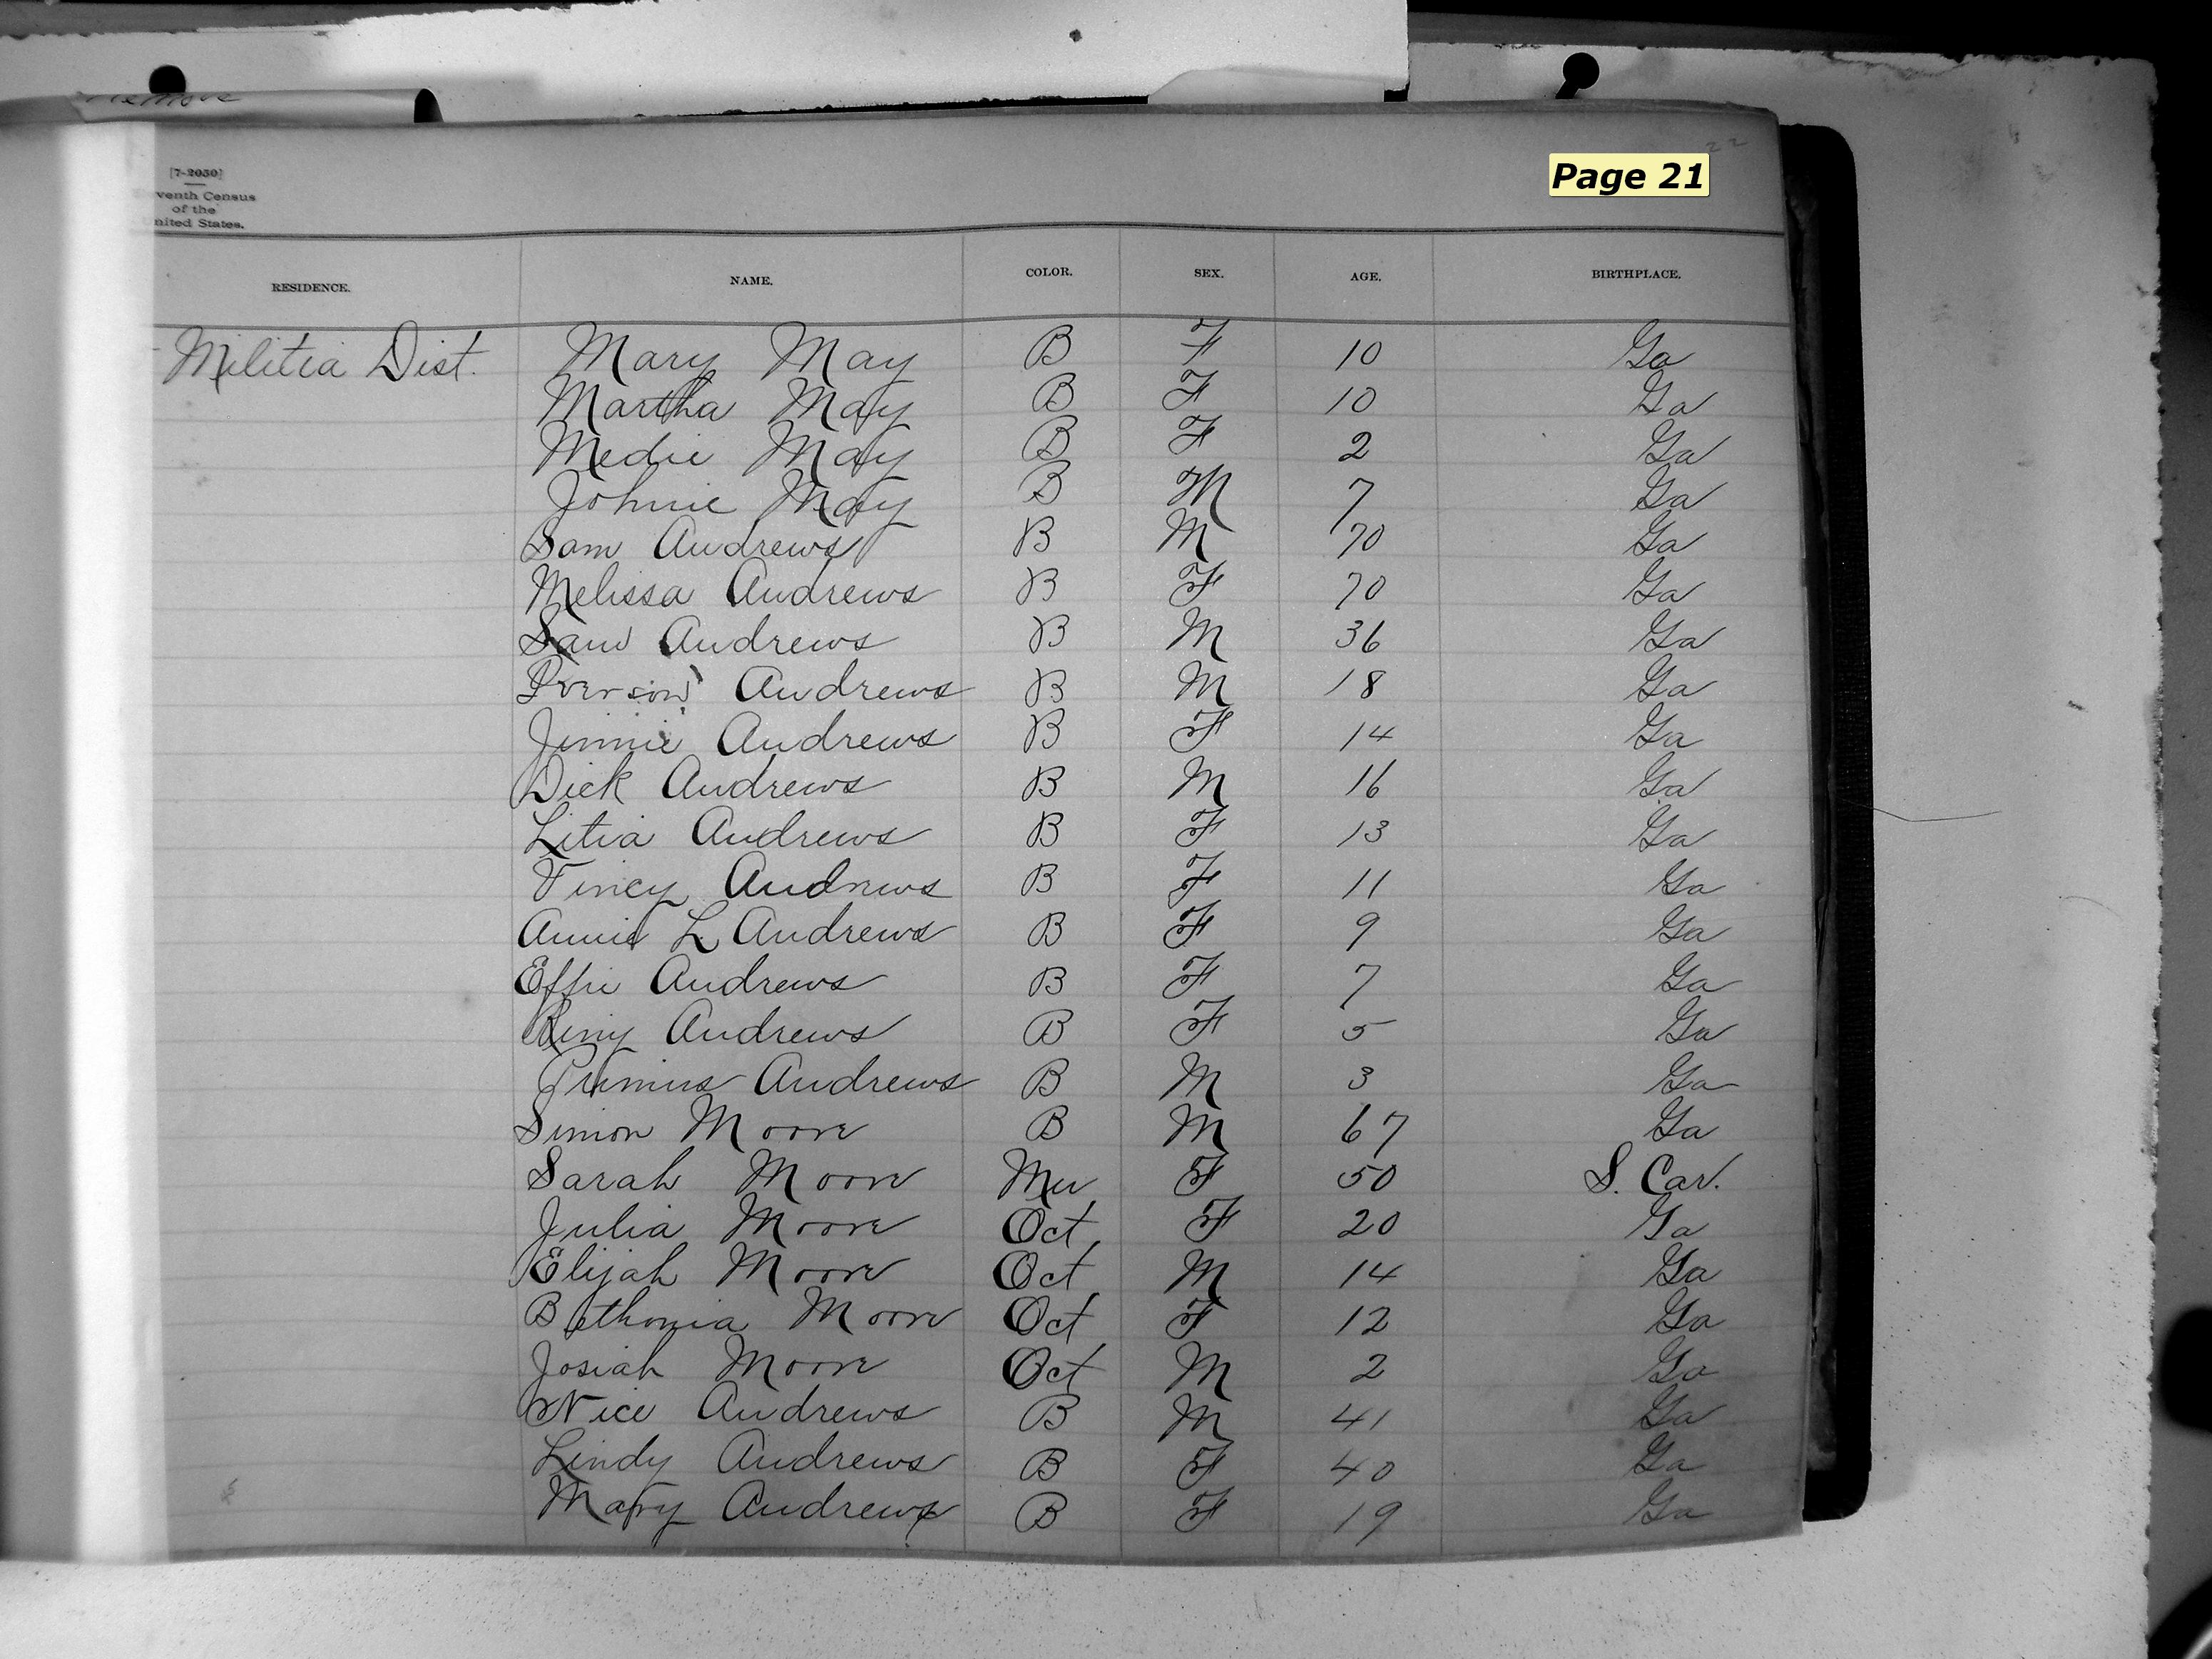 Remove
22
Page 21
[7-2050]
venth Census
of the
nited States.
RESIDENCE. NAME. COLOR. SEX. AGE. BIRTHPLACE.
Militia Dist. Mary May B F 10 Ga
Martha May B F 10 Ga
Medie May B F 2 Ga
Johnie May B M 7 Ga
Sam Andrews B M 70 Ga
Melissa Andrews B F 70 Ga
Sam Andrews B M 36 Ga
Iverson Andrews B M 18 Ga
Jinnie Andrews B F 14 Ga
Dick Andrews B M 16 Ga
Litia Andrews B F 13 Ga
Viney Andrews B F 11 Ga
Annie L Andrews B F 9 Ga
Effie Andrews B F 7 Ga
Andrews B F 5 Ga
Primus Andrews B M 3 Ga
Simon Moore B M 67 Ga
Sarah Moore Mu F 50 S. Car.
Julia Moore Oct F 20 Ga
Elijah Moore Oct M 14 Ga
Bethonia Moore Oct F 12 Ga
Josiah Moore Oct M 2 Ga
Nice Andrews B M 41 Ga
Lindy Andrews B F 40 Ga
Mary Andrews B F 19 Ga